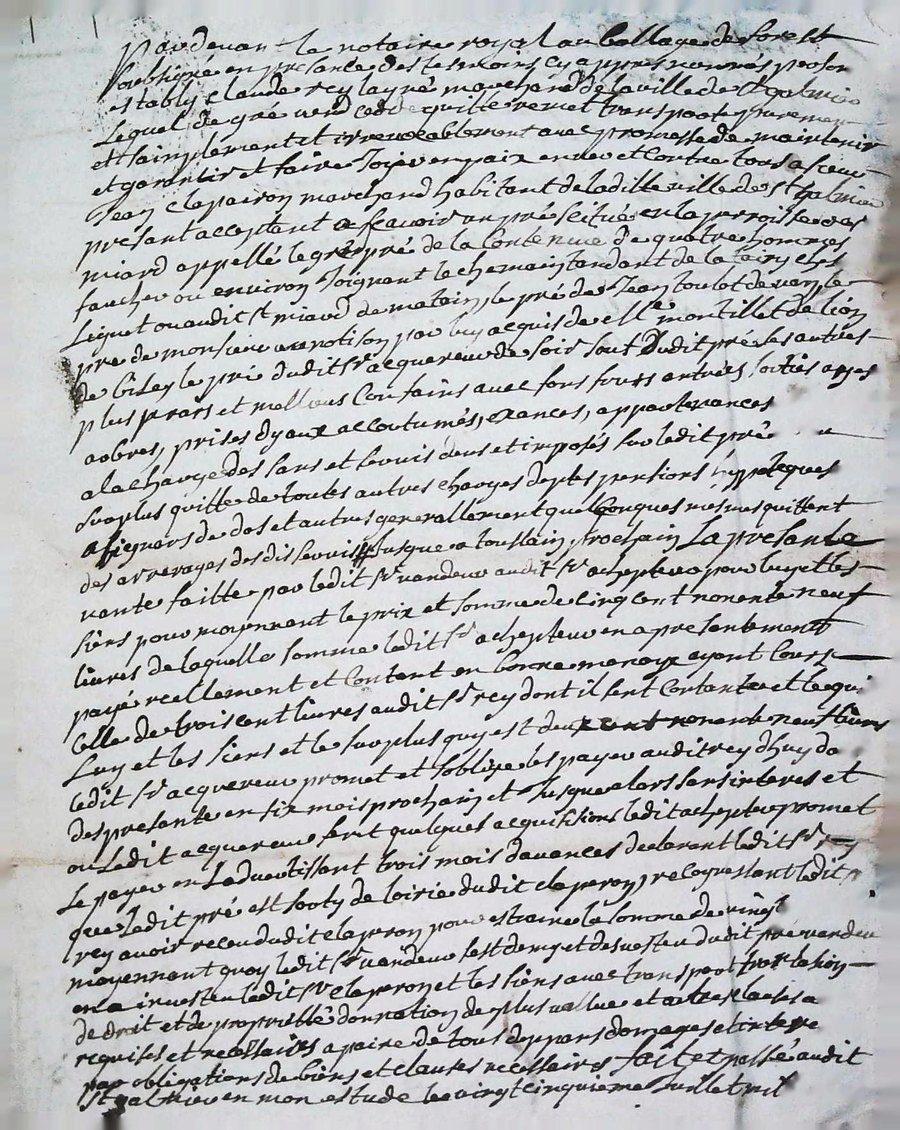 Pardevant le notaire royal au ballage de forest
soubsigné en presance des tesmoins cy appres només person
estably claude rey layné marchand de la ville de St galmier
Lequel de gré vend cede quitte remet transporte purement
et simplement et irrevocablement avec promesse de maintenir
et garantir et faire Joüir en paix envers et contre tous a sieur
Jean claperon marchand habitant de laditte ville de St galmier
present acceptant a scavoir un pré scitué en la perroisse de St
miard appellé le gros pré de la contenue de quatre hommes
faucheur ou environ Joignant le chemain tendant de la
Liquet ou audit St miard de matain, le pré de Jean toulot de vent, le
pre de monsieur par luy acquis de Mlle montillet de lion
de bize, le pré dudit Sr acquereur de soir sauf dudit pré les autres
plus vrais et melieurs confains avec fons fruits antrées, sorties ayses
arbres, prises d'yaux accoutumés, exances, appartenances
a la charge des sans et servis deus et imposés sur ledit pré
surplus quitte de toutes autres charges deptes pensions yppoteques
de dos et autres generallement quelconques mesmes quittent
des arrerages desdis servis Jusque a toussain prochain La presante
vante faitte par ledit Sr vandeur audit Sr achepteur pour luy et les
siens pour moyennant le prix et somme de cinq cent nonente neuf
livres de laquelle somme ledit Sr achepteur en a presentement
payé reellement et contant en bonne monoye ayant cours
celle de trois cent livres audit Sr rey dont il sent contante et la qui
Luy et les siens et le surplus quy est deux cent nonente neuf livres
ledit Sr acquereur promet et s'oblige les payer audit rey d'huy da
des presante en six mois prochain et Jusque alors sans interes et
ou Ledit acquereur ferat quelques acquisitions ledit achepteur promet
Le payer en Ladvertissant trois mois davances declarent ledit Sr rey
que Ledit pré est sorty de loirie dudit claperon, recognestant ledit Sr
rey avoir receu dudit claperon pour estraine la somme de vingt
moyennant quoy ledit Sr vandeur sest demy et desvestu dudit pré vandeu
en a investeu ledit Sr claperon et les siens avec transport translation
de droit et de proprietté donnation de plus vallue et autres clauses a
requises et necessaires a paine de tous depans domages et interes
par obligations de biens et clauses necessaires fait et passé audit
St galmier en mon estude le vingt cinquieme Juillet mil